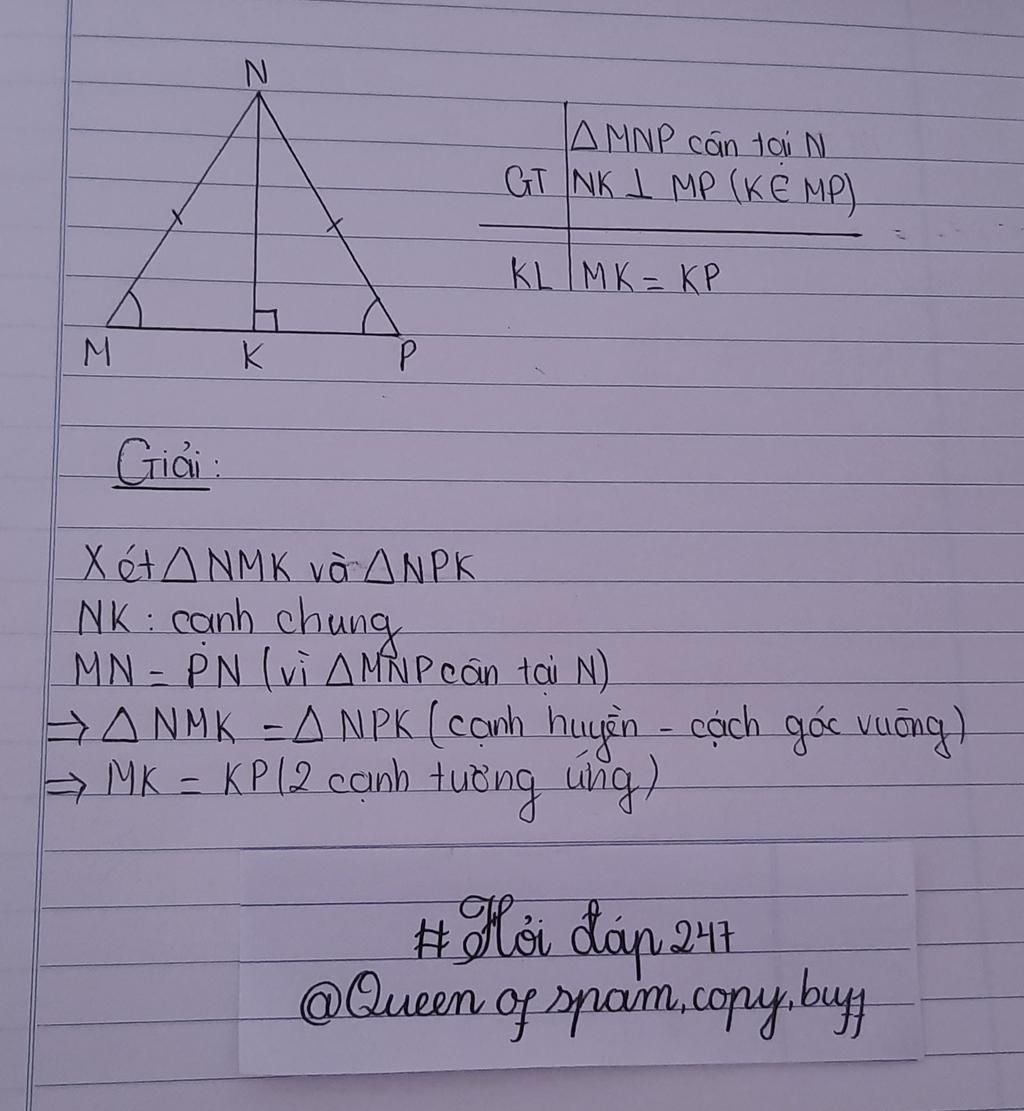 N
M K P
△MNP cân tại N
GT NK ⊥ MP (K ∈ MP)
KL MK = KP
Giải:
Xét △NMK và △NPK
NK : cạnh chung
MN = PN (vì △MNP cân tại N)
⇒ △ NMK = △ NPK (cạnh huyền - cách góc vuông)
⇒ MK = KP (2 cạnh tương ứng)
#Hỏi đáp 247
@Queen of spam,copy,buff